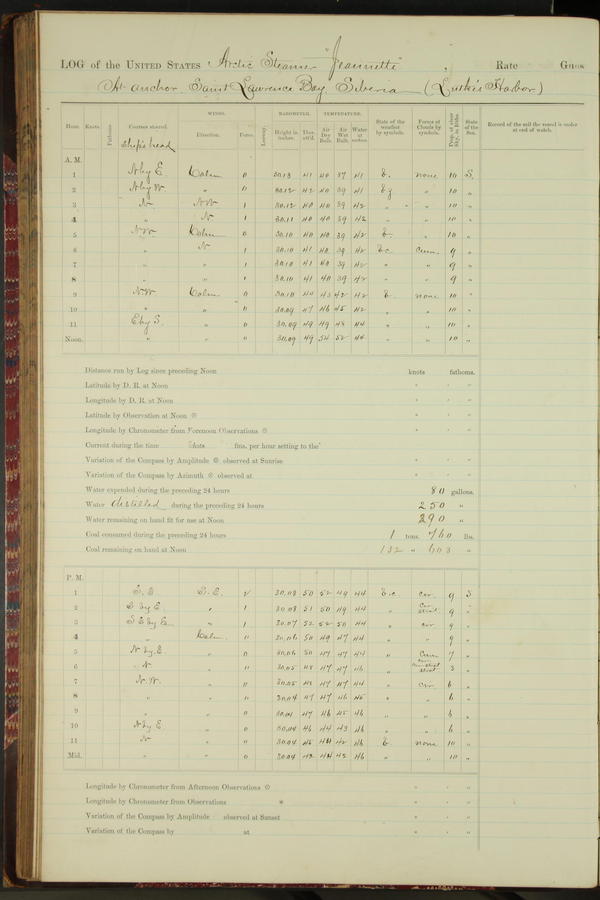 LOG of the UNITED STATES Arctic Steamer "Jeannette", Rate Guns
At anchor Saint Lawrence Bay Siberia (Lutke's Harbor)
WINDS. BAROMETER. TEMPERATURE.
Hour. Knots. Fathoms. Courses steered. Direction. Force. Leeway. Height in inches. Ther. att'd. Air Dry Bulb. Air Wet Bulb. Water at surface. State of the weather by symbols. Forms of Clouds by symbols. Prop. of clear Sky, in 10ths. State of the Sea. Record of the sail the vessel is under at end of watch.
Ship's head
A. M.
1 N by E Calm 0 30.13 41 40 37 41 b. none 10 S.
2 N by W. " 0 30.12 42 40 39 41 " 10 "
3 N NW 1 30.12 40 40 39 42 " " 10 "
4 " N 1 30.11 40 40 39 42 " " 10 "
5 NW Calm 0 30.10 40 40 39 42 b. " 10 "
6 " N 1 30.10 41 40 39 42 b.c. Cum. 9 "
7 " " 1 30.10 41 40 39 42 " " 9 "
8 " " 1 30.10 41 40 39 42 " " 9 "
9 NW Calm 0 30.10 44 43 42 42 b. none 10 "
10 " " 0 30.09 47 46 45 42 " " 10 "
11 E by S. " 0 30.09 49 49 48 44 " " 10 "
Noon. " " 0 30.09 49 54 52 44 " " 10 "
Distance run by Log since preceding Noon knots fathoms.
Latitude by D. R. at Noon
Longitude by D. R. at Noon
Latitude by Observation at Noon
Longitude by Chronometer from Forenoon Observations
Current during the time knots fms. per hour setting to the
Variation of the Compass by Amplitude observed at Sunrise
Variation of the Compass by Azimuth observed at
Water expended during the preceding 24 hours 80 gallons.
Water distilled during the preceding 24 hours 250 "
Water remaining on hand fit for use at Noon 290 "
Coal consumed during the preceding 24 hours 1 tons. 760 lbs.
Coal remaining on hand at Noon 132 " 603 "
P. M.
1 S. E. S. E. 2 30.08 50 52 49 44 b.c. cir. 9 S
2 S by E. " 1 30.08 51 50 49 44 " Cir. strat. 9 "
3 S E by E. " 1 30.07 52 52 50 44 " cir. 9 "
4 " Calm 0 30.06 50 49 47 44 " " 9 "
5 N by E. " 0 30.06 50 47 47 44 " Cum 7 "
6 N. " 0 30.05 48 47 47 46 " 3 "
7 N.W. " 0 30.05 48 47 47 44 " cir. 6 "
8 " " 0 30.04 47 47 46 45 " " 6 "
9 " " 0 30.04 47 46 45 46 " " 6 "
10 N by E " 0 30.04 46 44 43 46 " " 6 "
11 N " 0 30.04 45 44 42 46 b. none 10 "
Mid. " " 0 30.04 43 44 42 46 " " 10 "
Longitude by Chronometer from Afternoon Observations
Longitude by Chronometer from Observations
Variation of the Compass by Amplitude observed at Sunset
Variation of the Compass by at